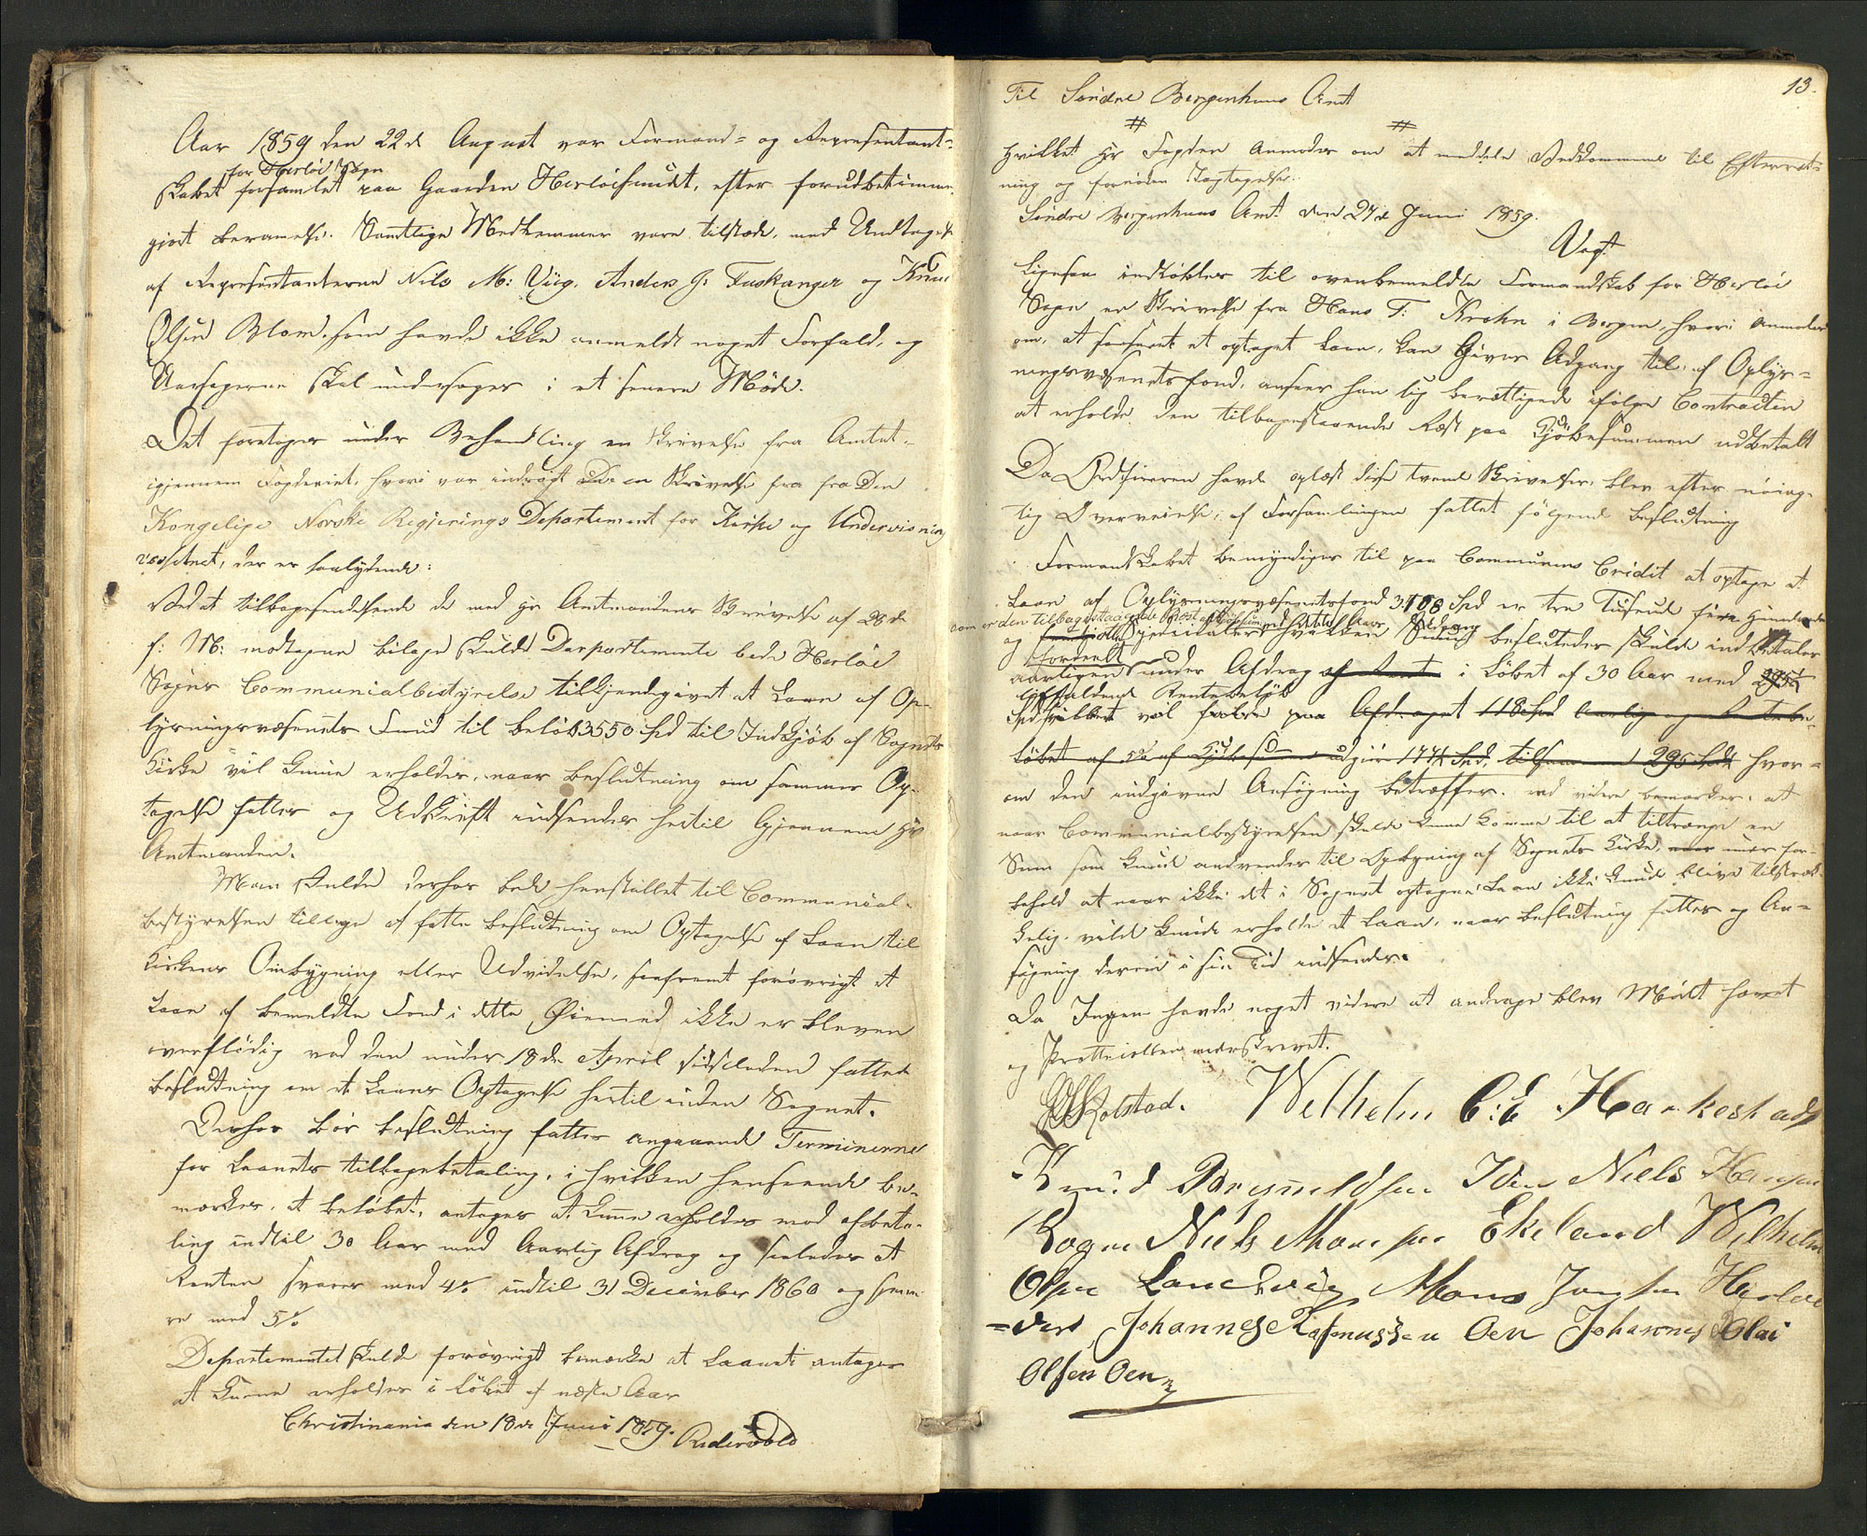 Aar 1859 den 22de August var Formands= og Repræsentant-
for Herlöe Sogn
skabet forsamlet paa Gaarden Herlöesundt, efter forudbestemme
gjort Berammelse. Samtlige Medlemmer vare tilstæde, med Undtagelse
af Repræsentanterne Nils M: Viig, Anders J: Fuskanger og Knud
Olsen Blom, som havde ikke anmeldt noget Forfald, og
Aarsagerne skal undersøges i et senere Møde.
Det foretages under Behandling en Skrivelse fra Amtet
igjennem Fogderiet, hvori var indtagt en Skrivelse fra fra Den
Kongelige Norske Regjerings Departement for Kirke og Undervisning
væsenet, der er saalydende:
Ved at tilbagesende de med Hr Amtmandens Skrivelse af 28de
f: M: modtagne Bilage skulde Departementet bede Herlöe
Sogns Communalbestyrelse tilkjendegivet at Laan af Op-
lysningsvæsenets Fond til Beløb 3550 Spd til Indkjöb af Sognets
Kirke vil kunne erholdes, naar Beslutning om sammes Op-
tagelse fattes og Udskrift indsendes hertil gjennem Hr
Amtmanden.
Man skulde derhos bede henstillet til Communal-
bestyrelsen tillige at fatte Beslutning om Optagelse af Laan til
Kirkens Ombygning eller Udvidelse, saafremt forøvrigt et
Laan af bemeldte Fond i dette Øiemed ikke er bleven
overflödig ved den under 18de April sidstleden fattet
Beslutning om et Laans Optagelse hertil inden Sognet.
Derhos bør Beslutning fattes angaaende Terminerne
for Laanets Tilbagebetaling, i hvilken Henseende be-
mærkes, at Beløbet, antages at kunne erholdes mod afbeta-
ling indtil 30 Aar med Aarlig Afdrag og saaledes at
Renten svares med 4% indtil 31 December 1860 og senere
re med 5%
Departementet skulde forøvrigt bemærke at Laanet antages
at kunne erholdes i Løbet af næste Aar
Christiania den 18de Juni 1859. Riddervold
13.
Til Söndre Bergenhuus Amt
Hvilket Hr Fogden anmodes om at meddele Vedkommende til Efterret-
ning og fornøden Iagttagelse.
Söndre Bergenhuus Amt den 27de Juni 1859.
Vogt
Ligesaa indløbtes til ovenbemeldte Formandskab for Herlöe
Sogn en Skrivelse fra Hans T: Krohn i Bergen, hvori anmodes
om, at saasnart et optaget Laan, kan Gives Adgang til, af Oplys-
ningsvæsenets Fond, anseer han sig berettiget ifølge Contracten
at erholde den tilbagestaaende Rest paa Kjöbesummen udbetalt
Da Ordføreren havde oplæst disse tvende Skrivelser, blev efter nöiag-
tig Overveielse, af Forsamlingen fattet følgende Beslutning
Formandskabet bemyndiges til paa Communens Credit at optage et
Laan af Oplysningsvæsenets Fond 3408 Spd er tre Tusende fire hundrede
som er den tilbagestaaende Rest
og otte Specidaler, hvilken Summa besluttedes skulde indbetales
aarligen under Afdrag i Løbet af 30 Aar med
hvilket vil Afdraget 118 Spd Aarlig
Löbet af 5% af Kjöbesummen udgjör 177½ Spd. tilsammen 295 Spd hvor-
om den indgivne Ansögning betræffer. ved videre bemærkes at
naar Communalbestyrelsen skulde kunne komme til at tiltrænge en
Sum som kunde anvendes til Ombygning af Sognets Kirke, for-
behold at naar ikke det i Sognet optagne Laan ikke kunde blive tilstræk-
kelig, vilde kunde erholde et Laan, naar Beslutning fattes og An-
søgning derom i sin Tid indsendes.
Da Ingen havde noget videre at andrage blev Mödet hævet
og Protocollen underskrevet.
Rolstad. Wilhelm C:E Harkestad
Knud Brynildsen Iden Niels Hansen
Rogne Niels Monsen Ekeland Wilhelm
Olsen Landsvig Mons Jansen Herlöe
=vær Johannes Rasmussen Oen Johannes Olai
Olsen Oen